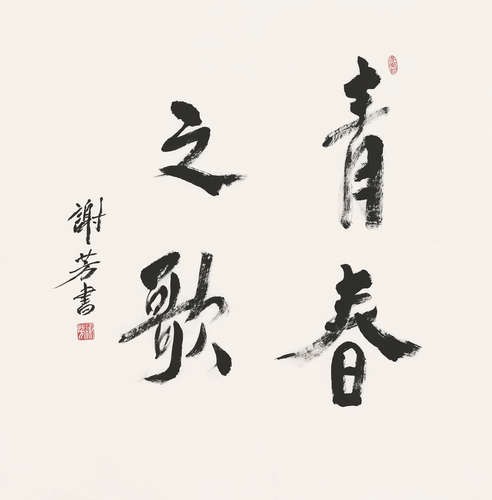 青春
之歌
謝芳書